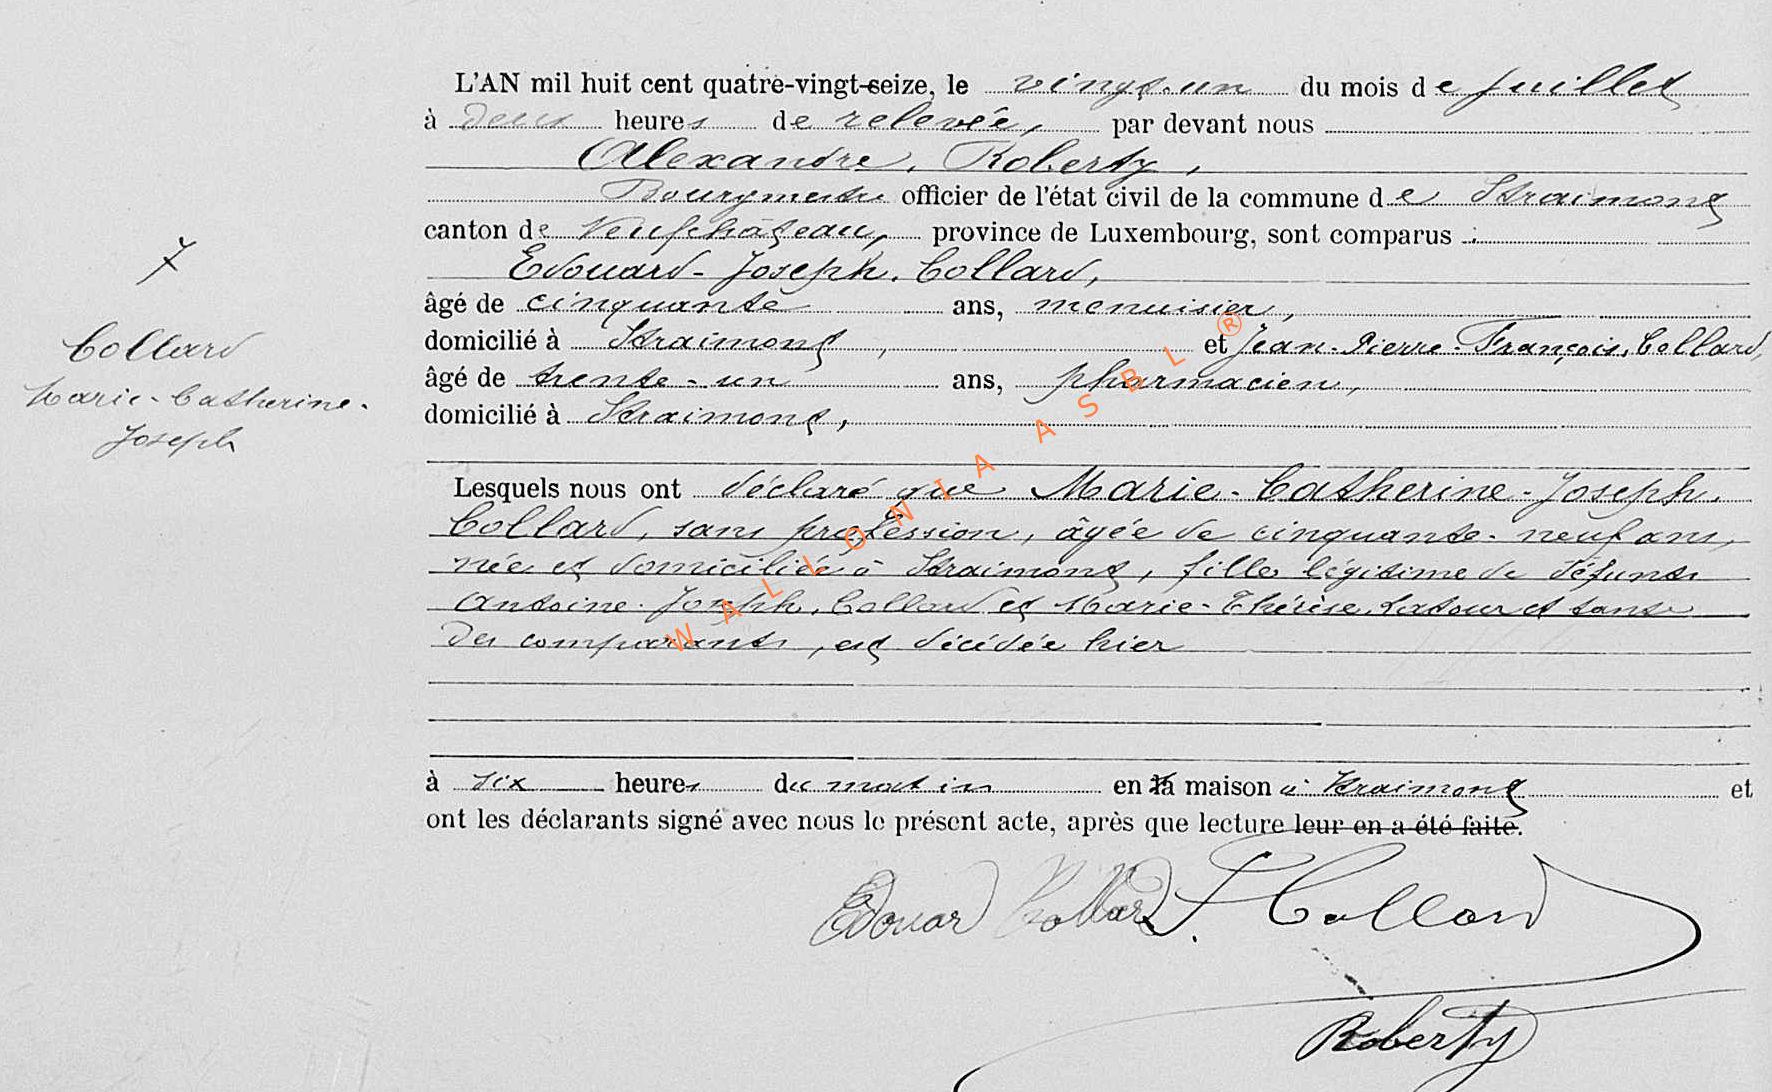 L'AN mil huit cent quatre-vingt-seize, le vingt-un du mois de Juillet
à deux heures de relevée, par devant nous
Alexandre, Roberty,
Bourgmestre officier de l'état civil de la commune de Straimont
canton de Neufchâteau, province de Luxembourg, sont comparus :
Edouard-Joseph, Collard,
âgé de cinquante ans, menuisier,
domicilié à Straimont, et Jean-Pierre-François, Collard,
âgé de trente-un ans, pharmacien,
domicilié à Straimont,
7
Collard
Marie-Catherine-
Joseph
Lesquels nous ont déclaré que Marie-Catherine-Joseph,
Collard, sans profession, âgée de cinquante-neuf ans,
née et domiciliée à Straimont, fille légitime de défunts
Antoine-Joseph, Collard et Marie-Thérèse, Latour et tante
des comparants, est décédée hier
à six heures du matin en la maison à Straimont et
ont les déclarants signé avec nous le présent acte, après que lecture leur en a été faite.
Edouard Collard J. Collard
Roberty
WALLONIA ASBL ®